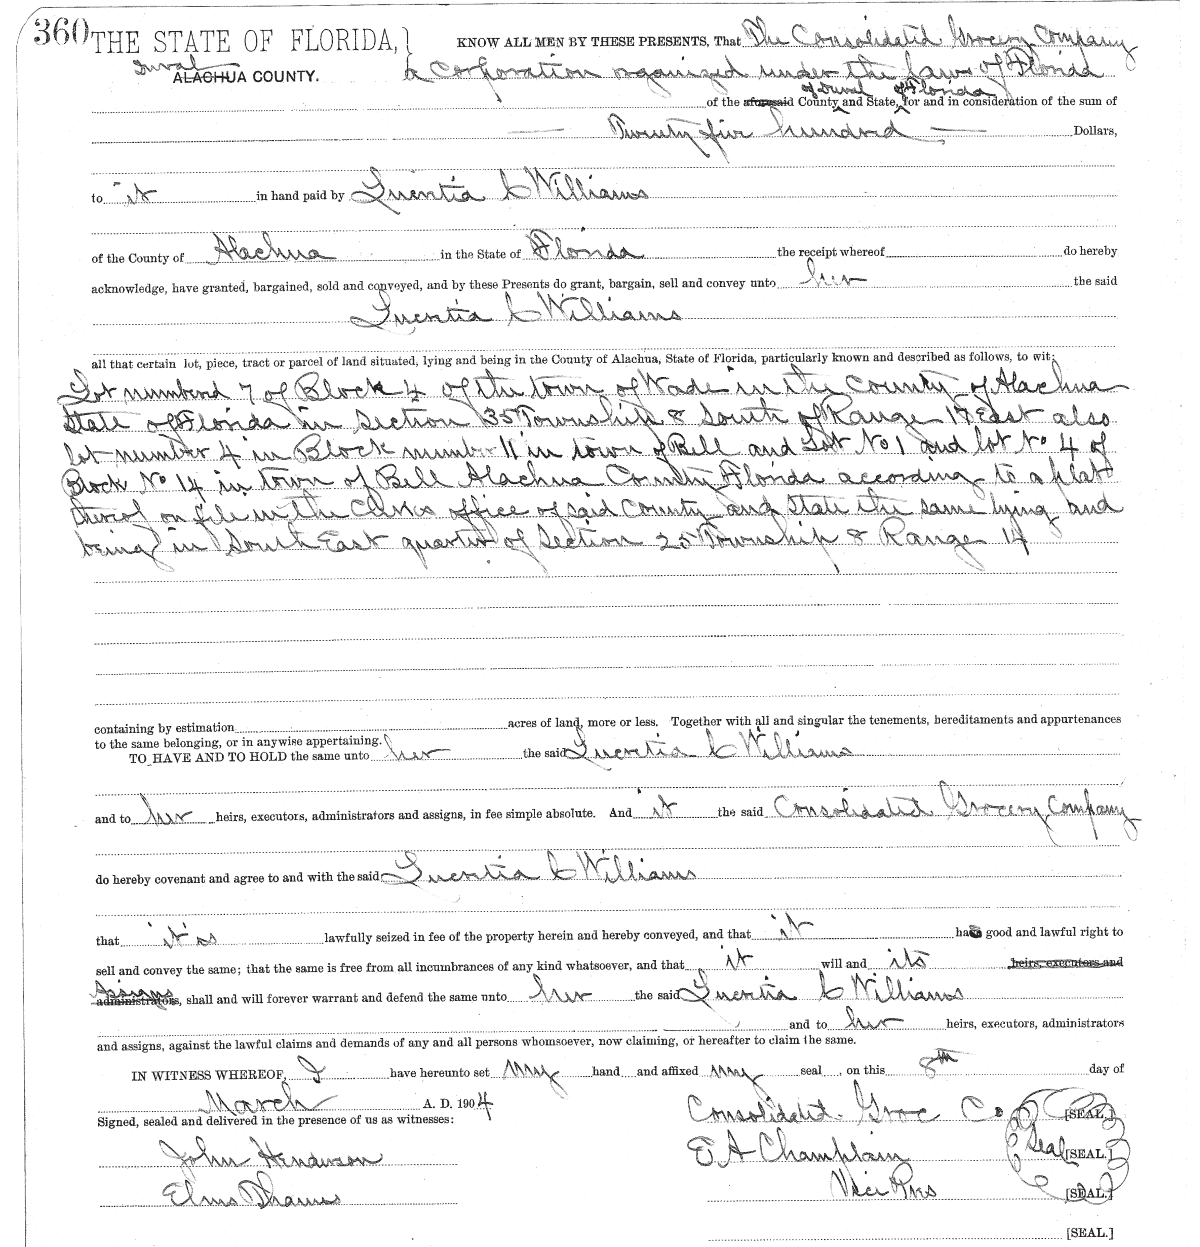 360 THE STATE OF FLORIDA,} KNOW ALL MEN BY THESE PRESENTS, That The Consolidated Grocery Company
Duval
ALACHUA COUNTY. a corporation organized under the laws of Florida
of Duval of Florida
of the aforesaid County and State, for and in consideration of the sum of
Twenty five hundred Dollars,
to it in hand paid by Lucretia C Williams
of the County of Alachua in the State of Florida the receipt whereof do hereby
acknowledge, have granted, bargained, sold and conveyed, and by these Presents do grant, bargain, sell and convey unto her the said
Lucretia C Williams
all that certain lot, piece, tract or parcel of land situated, lying and being in the County of Alachua, State of Florida, particularly known and described as follows, to wit:
Lot numbered 7 of Block 4 of the town of Wade in the County of Alachua
State of Florida in Section 35 Township 8 South of Range 17 East also
lot number 4 in Block number 11 in town of Bell and Lot No 1 and lot No 4 of
Block No 14 in town of Bell Alachua County Florida according to a plat
thereof on file in the Clerks office of said County and State the same lying and
being in South East quarter of Section 25 Township 8 Range 14
containing by estimation acres of land, more or less. Together with all and singular the tenements, hereditaments and appurtenances
to the same belonging, or in anywise appertaining.
TO HAVE AND TO HOLD the same unto her the said Lucretia C Williams
and to her heirs, executors, administrators and assigns, in fee simple absolute. And it the said Consolidated Grocery Company
do hereby covenant and agree to and with the said Lucretia C Williams
that it is lawfully seized in fee of the property herein and hereby conveyed, and that it has good and lawful right to
sell and convey the same; that the same is free from all incumbrances of any kind whatsoever, and that it will and its heirs, executors and
Assigns
administrators, shall and will forever warrant and defend the same unto her the said Lucretia C Williams
and to her heirs, executors, administrators
and assigns, against the lawful claims and demands of any and all persons whomsoever, now claiming, or hereafter to claim the same.
IN WITNESS WHEREOF, I have hereunto set my hand and affixed my seal, on this 8th day of
March A. D. 1904
Signed, sealed and delivered in the presence of us as witnesses: Consolidated Groc Co [SEAL.]
John Henderson E A Champlain Seal [SEAL.]
Elms Vice Pres [SEAL.]
[SEAL.]